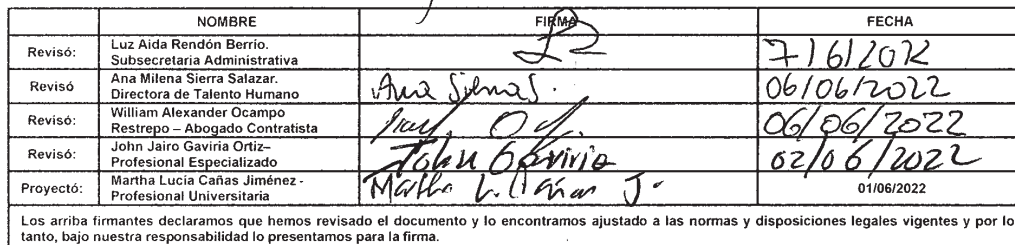 NOMBRE FIRMA FECHA
Revisó: Luz Aida Rendón Berrío.
Subsecretaria Administrativa 7/6/2022
Revisó Ana Milena Sierra Salazar.
Directora de Talento Humano Ana Sierra S. 06/06/2022
Revisó: William Alexander Ocampo
Restrepo – Abogado Contratista 06/06/2022
Revisó: John Jairo Gaviria Ortiz–
Profesional Especializado John Gaviria 02/06/2022
Proyectó: Martha Lucía Cañas Jiménez -
Profesional Universitaria Martha L. Cañas J. 01/06/2022
Los arriba firmantes declaramos que hemos revisado el documento y lo encontramos ajustado a las normas y disposiciones legales vigentes y por lo
tanto, bajo nuestra responsabilidad lo presentamos para la firma.